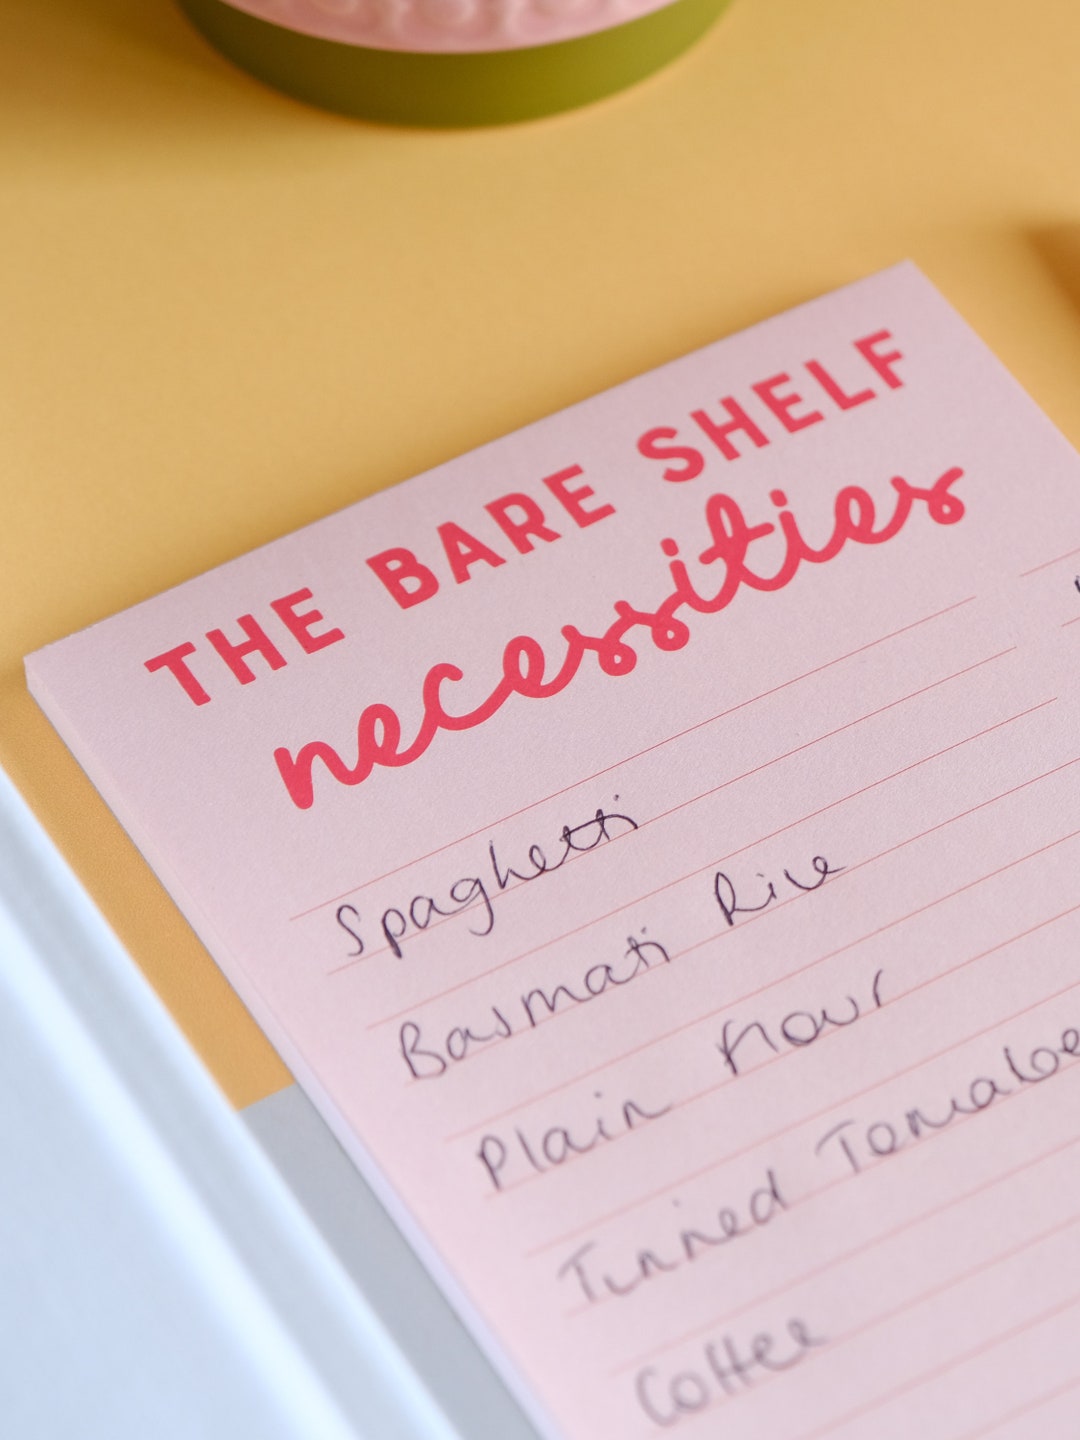 THE BARE SHELF
necessities
Spaghetti
Basmati Rice
Plain flour
Tinned Tomatoe
Coffee